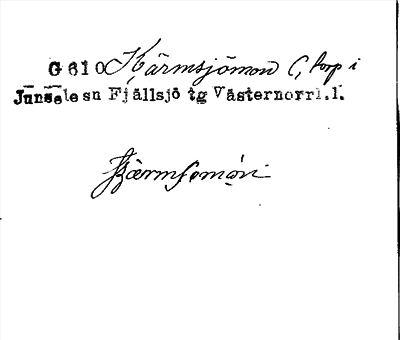 G 610 Kärmsjömon C, torp i
Junsele sn Fjällsjö tg Västernorrl.l.